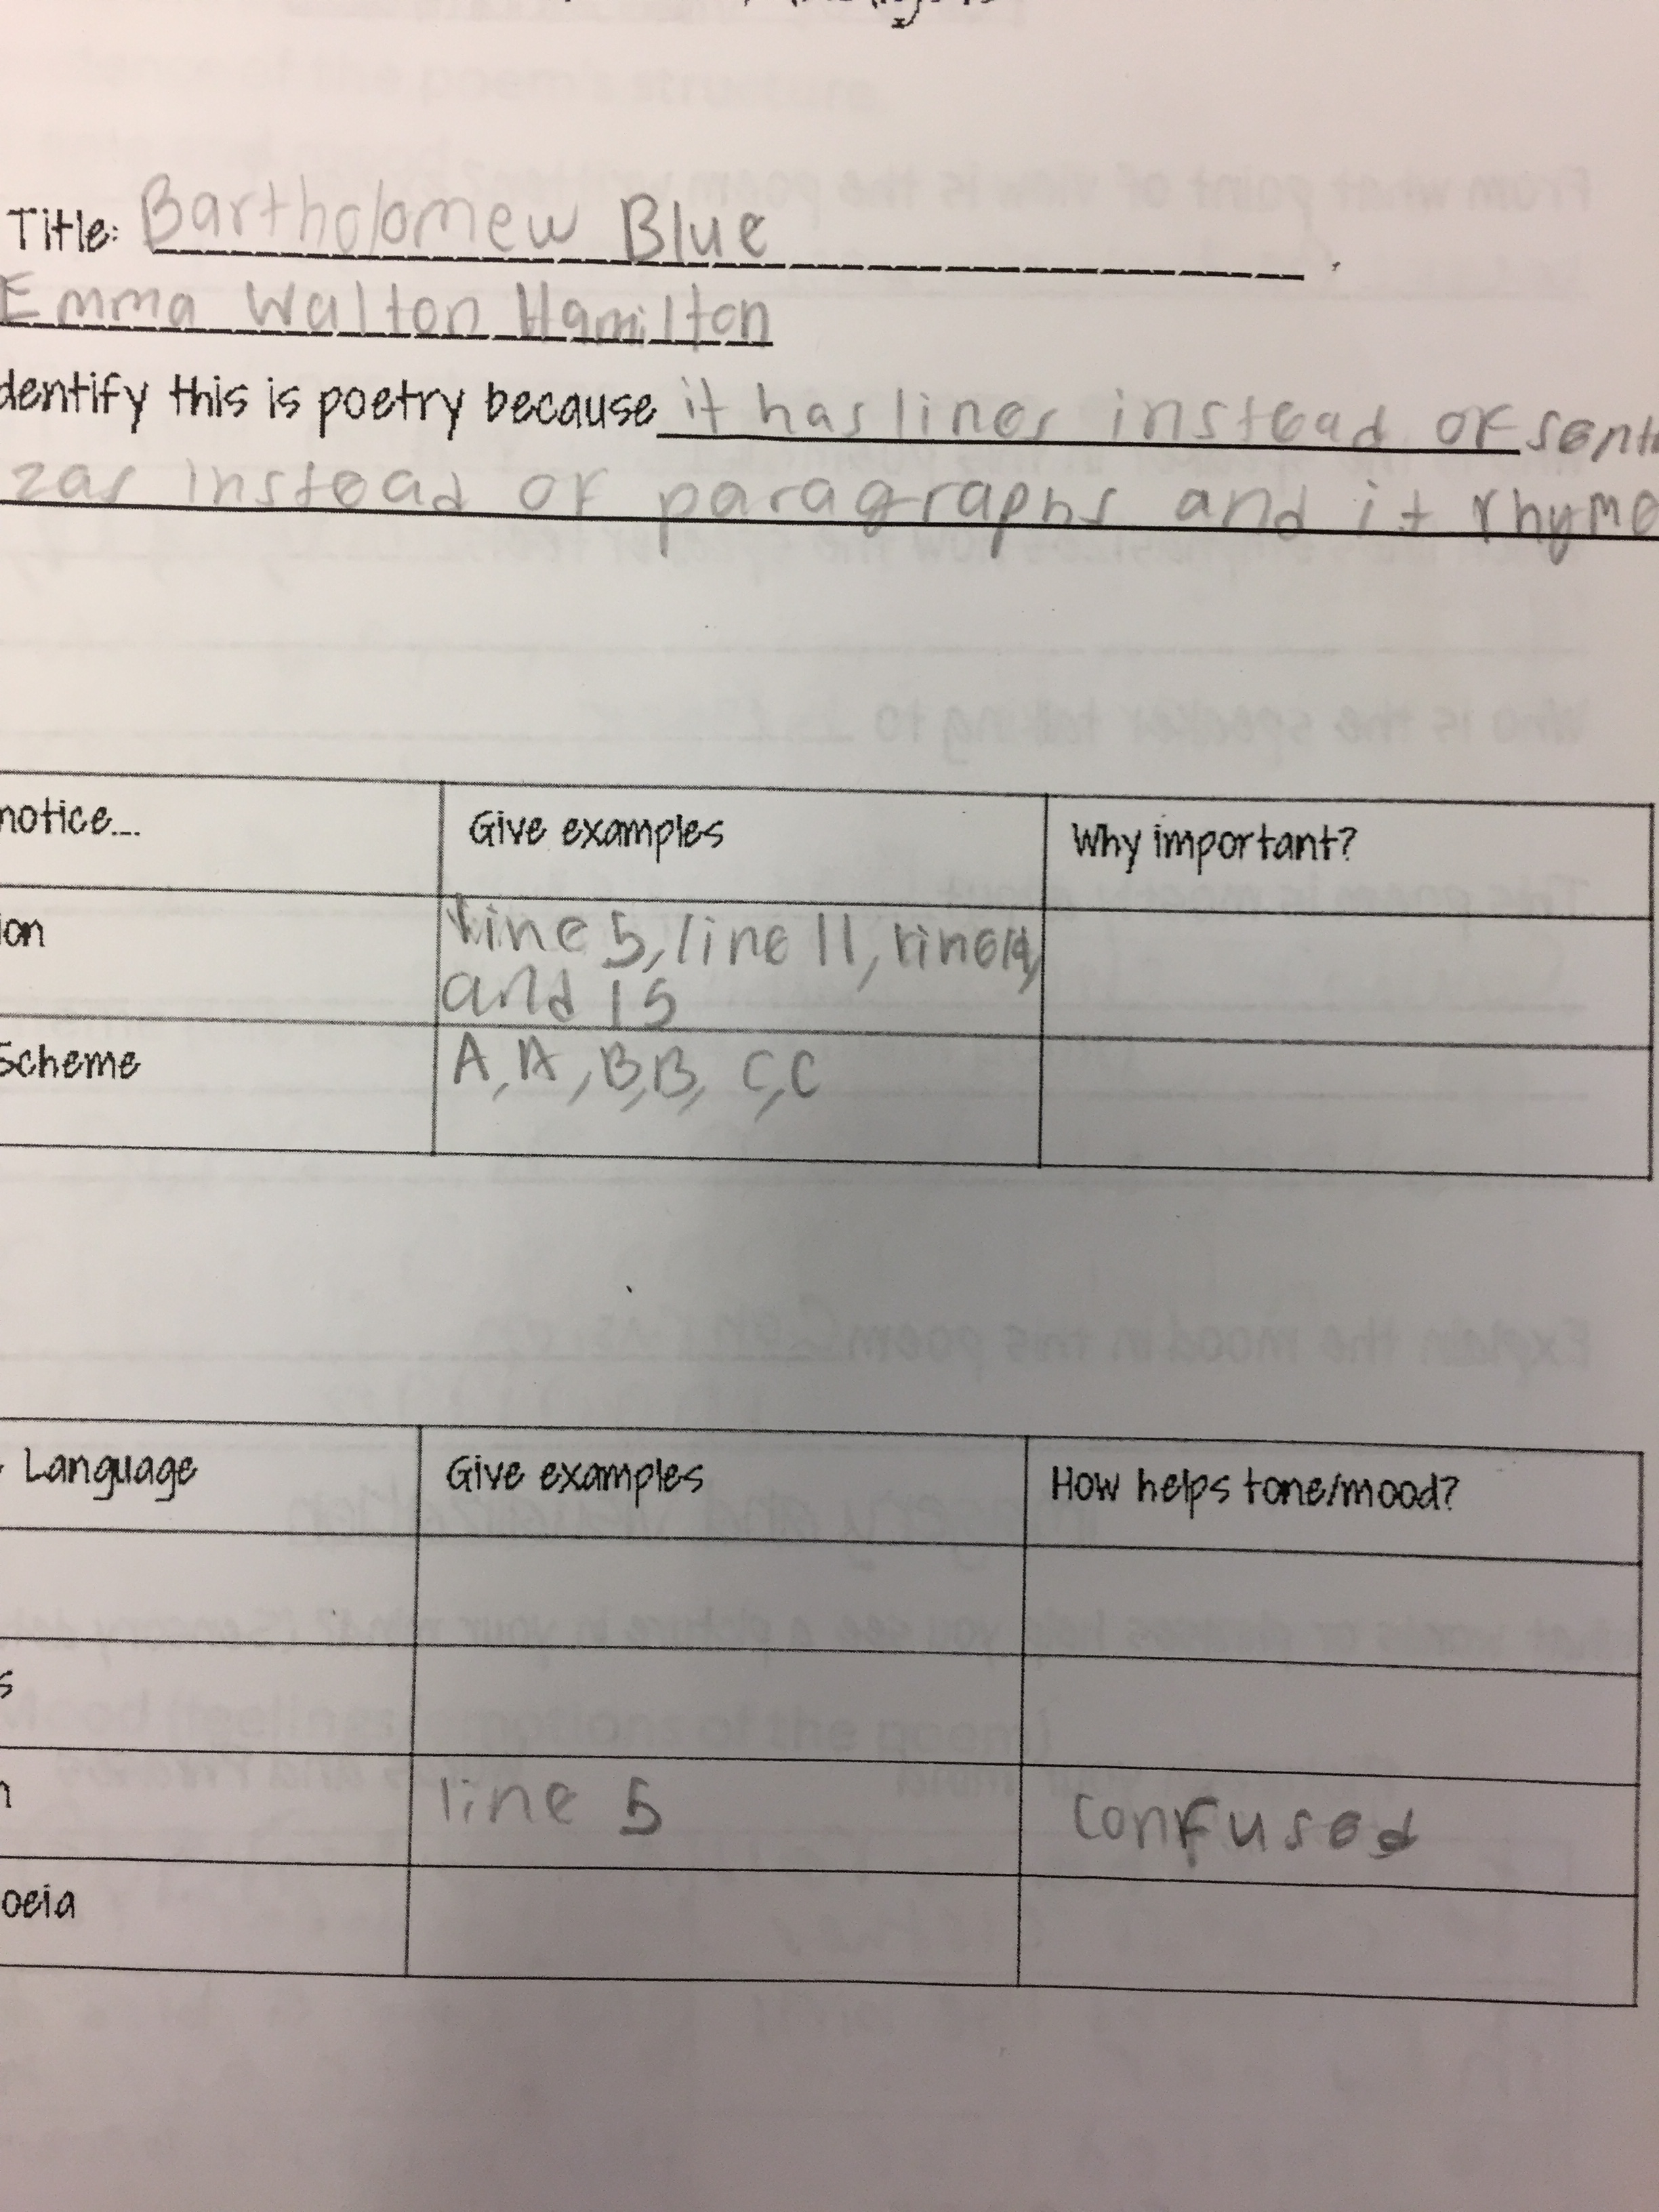 Title: Bartholomew Blue
Emma Walton Hamilton
dentify this is poetry because it has lines instead of sent
zas instead of paragraphs and it rhyme
notice... Give examples Why important?
ion line 5, line 11, line 14,
and 15
Scheme A, A, B, B, C, C
Language Give examples How helps tone/mood?
s
n line 5 confused
oeia